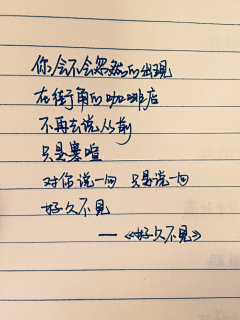 你会不会忽然的出现
在街角的咖啡店
不再去说从前
只是寒暄
对你说一句 只是说一句
好久不见
——《好久不见》